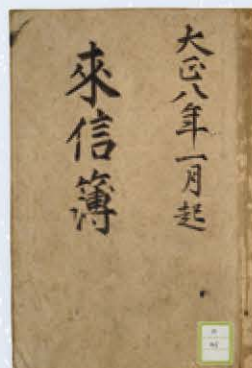 大正八年一月起
來信簿